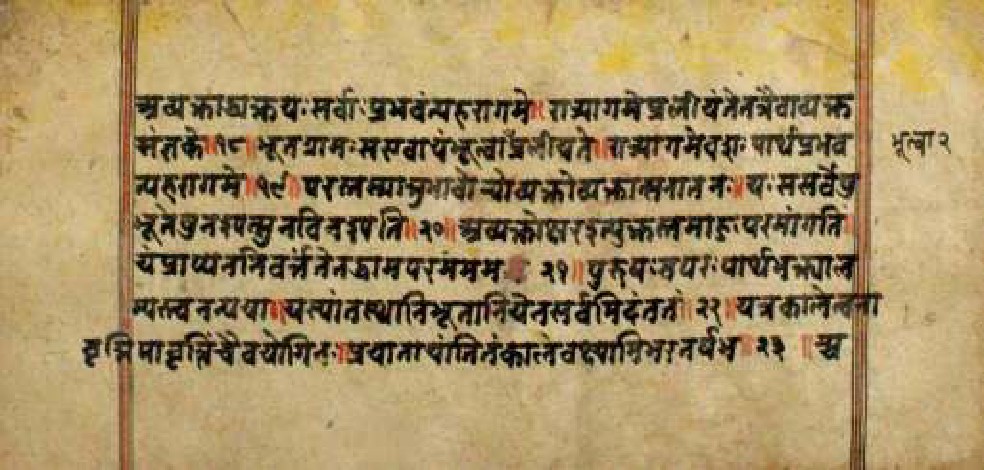 अव्यक्ताद्यक्तयः सर्वाः प्रभवंत्यहरागमे॥ रात्र्यागमे प्रलीयंते तत्रैवाव्यक्त
संज्ञके॥१८॥ भूतग्रामः स एवायं भूत्वा प्रलीयते॥ रात्र्यागमेवशः पार्थ प्रभव
भूत्वा २
त्यहरागमे॥१९॥ परस्तस्मात्तु भावोन्योव्यक्तोव्यक्तात्सनातनः॥ यः स सर्वेषु
भूतेषु नश्यत्सु न विनश्यति॥२०॥ अव्यक्तोक्षर इत्युक्तस्तमाहुः परमां गतिं
यं प्राप्य न निवर्त्तंते तद्धाम परमं मम २१॥ पुरुषः स परः पार्थ भक्त्या ल
भ्यस्त्वनन्यया॥ यस्यांतस्थानि भूतानि येन सर्वमिदं ततं॥२२॥ यत्र काले त्वना
वृत्तिमावृत्तिं चैव योगिनः॥ प्रयाता यांति तं कालं वक्ष्यामि भरतर्षभ॥२३॥ अ